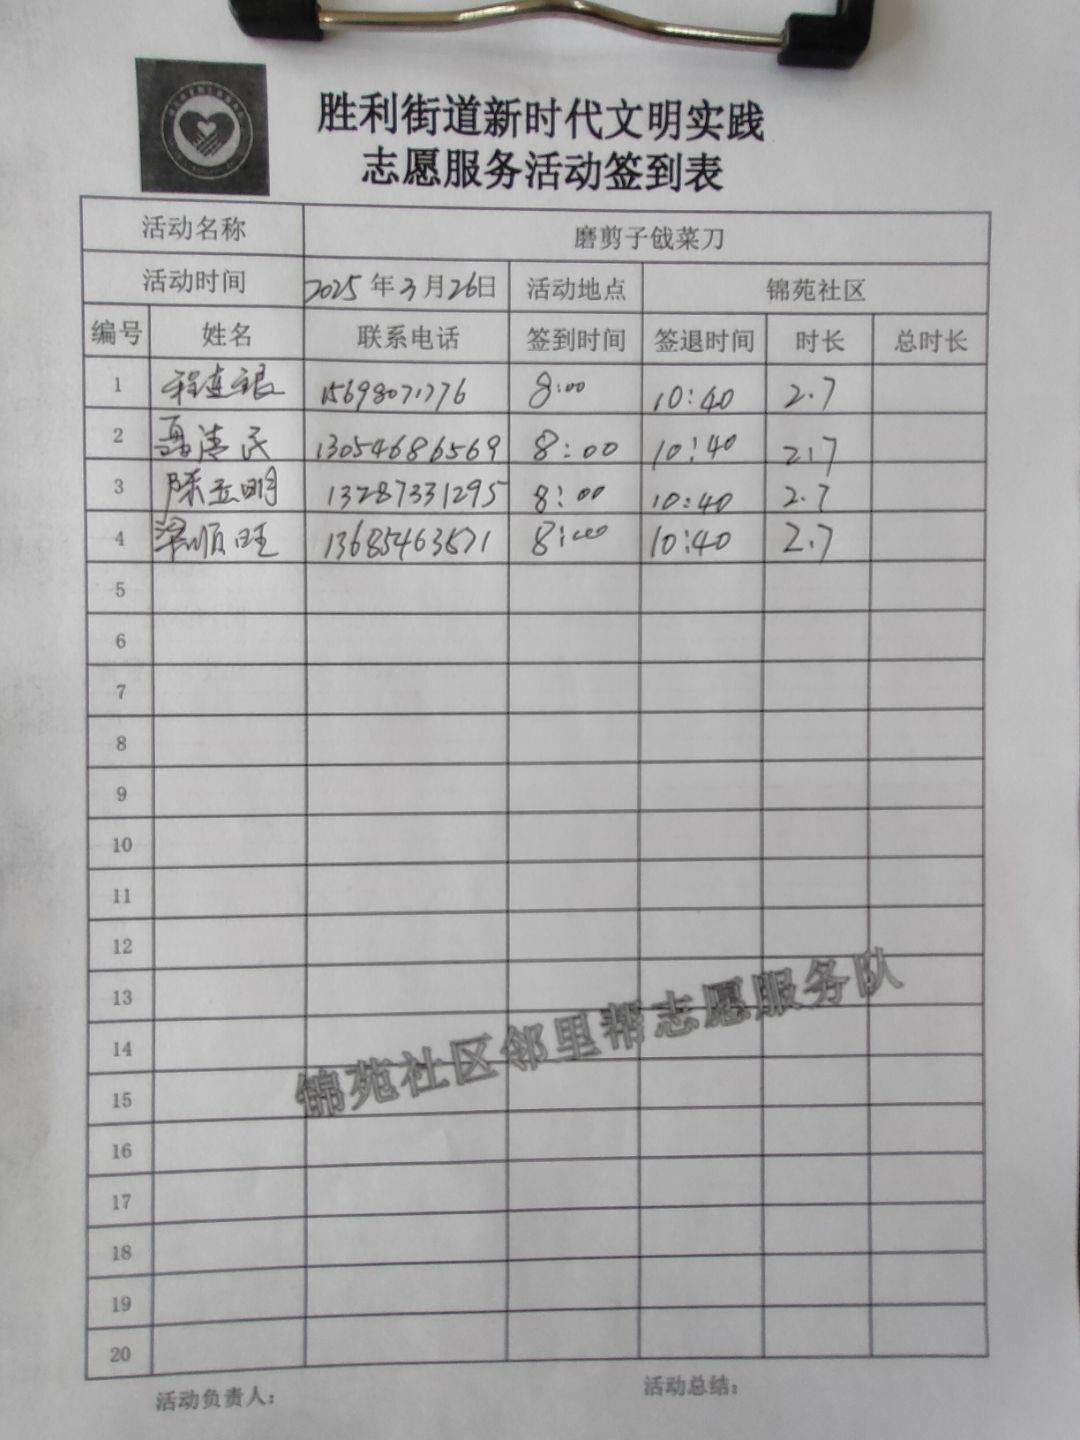 胜利街道新时代文明实践
志愿服务活动签到表
活动名称 磨剪子戗菜刀
活动时间 2025年3月26日 活动地点 锦苑社区
编号 姓名 联系电话 签到时间 签退时间 时长 总时长
1 程连银 15698071776 8:00 10:40 2.7
2 聂清民 13054686569 8:00 10:40 2.7
3 陈立明 13287331295 8:00 10:40 2.7
4 梁顺旺 13685463571 8:00 10:40 2.7
5
6
7
8
9
10
11
12
13
14
15
16
17
18
19
20
锦苑社区邻里帮志愿服务队
活动负责人： 活动总结：